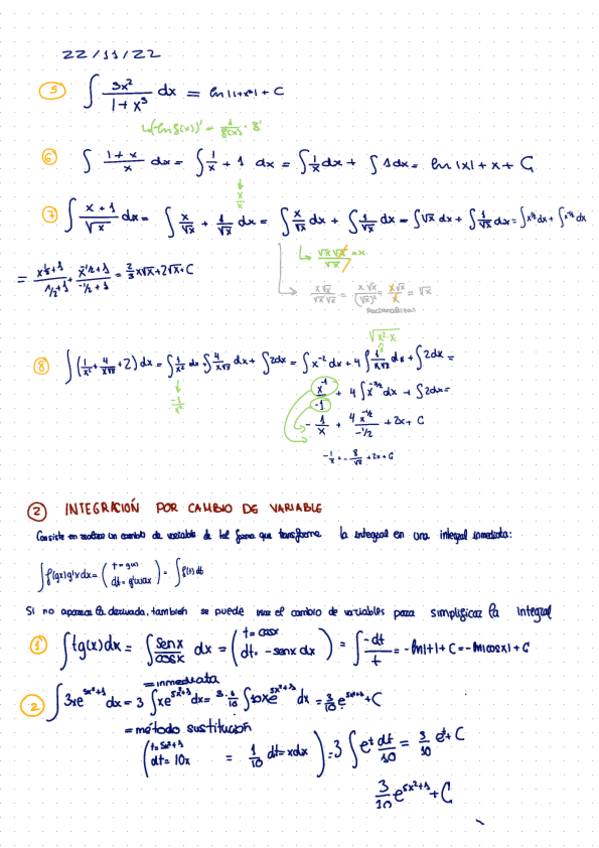 22/11/22
5 ∫ 3x²/(1+x³) dx = ln|1+x³| + C
↳(ln g(x))' = 1/g(x) · g'
6 ∫ (1+x)/x dx = ∫ 1/x + 1 dx = ∫ 1/x dx + ∫ 1dx = ln|x| + x + C
↓ x/x
7 ∫ (x+1)/√x dx = ∫ x/√x + 1/√x dx = ∫ x/√x dx + ∫ 1/√x dx = ∫ √x dx + ∫ 1/√x dx = ∫ x^(1/2) dx + ∫ x^(-1/2) dx
↳ √x √x/√x = x
= x^(1/2+1)/(1/2+1) + x^(-1/2+1)/(-1/2+1) = 2/3 x√x + 2√x + C
↳ x√x/(√x√x) = x√x/(√x)² = x√x/x = √x
Racionalizar
√(x²·x)
8 ∫ (1/x² + 4/(x√x) + 2) dx = ∫ 1/x² dx ∫ 4/(x√x) dx + ∫ 2dx = ∫ x^(-2) dx + 4 ∫ 1/(x√x) dx + ∫ 2dx =
x^(-1)/(-1) + 4 ∫ x^(-3/2) dx + ∫ 2dx =
- 1/x + 4x^(-1/2)/(-1/2) + 2x + C
-1/x + - 8/√x + 2x + C
2 INTEGRACIÓN POR CAMBIO DE VARIABLE
Consiste en realizar un cambio de variable de tal forma que transforme la integral en una integral inmediata:
∫ f(g(x))g'(x)dx = (t = g(x) dt = g'(x)dx) = ∫ f(t) dt
Si no aparece la derivada, tambien se puede usar el cambio de variables para simplificar la integral
1 ∫ tg(x)dx = ∫ senx/cosx dx = (t = cosx dt = -senx dx) = ∫ -dt/t = -ln|t| + C = -ln|cosx| + C
= inmediata
2 ∫ 3xe^(5x²+1) dx = 3 ∫ xe^(5x²+1) dx = 3·1/10 ∫ 10xe^(5x²+1) dx = 3/10 e^(5x²+1) + C
= método sustitución
(t = 5x²+1 dt = 10x = 1/10 dt = xdx) = 3 ∫ e^t dt/10 = 3/10 e^t + C
3/10 e^(5x²+1) + C